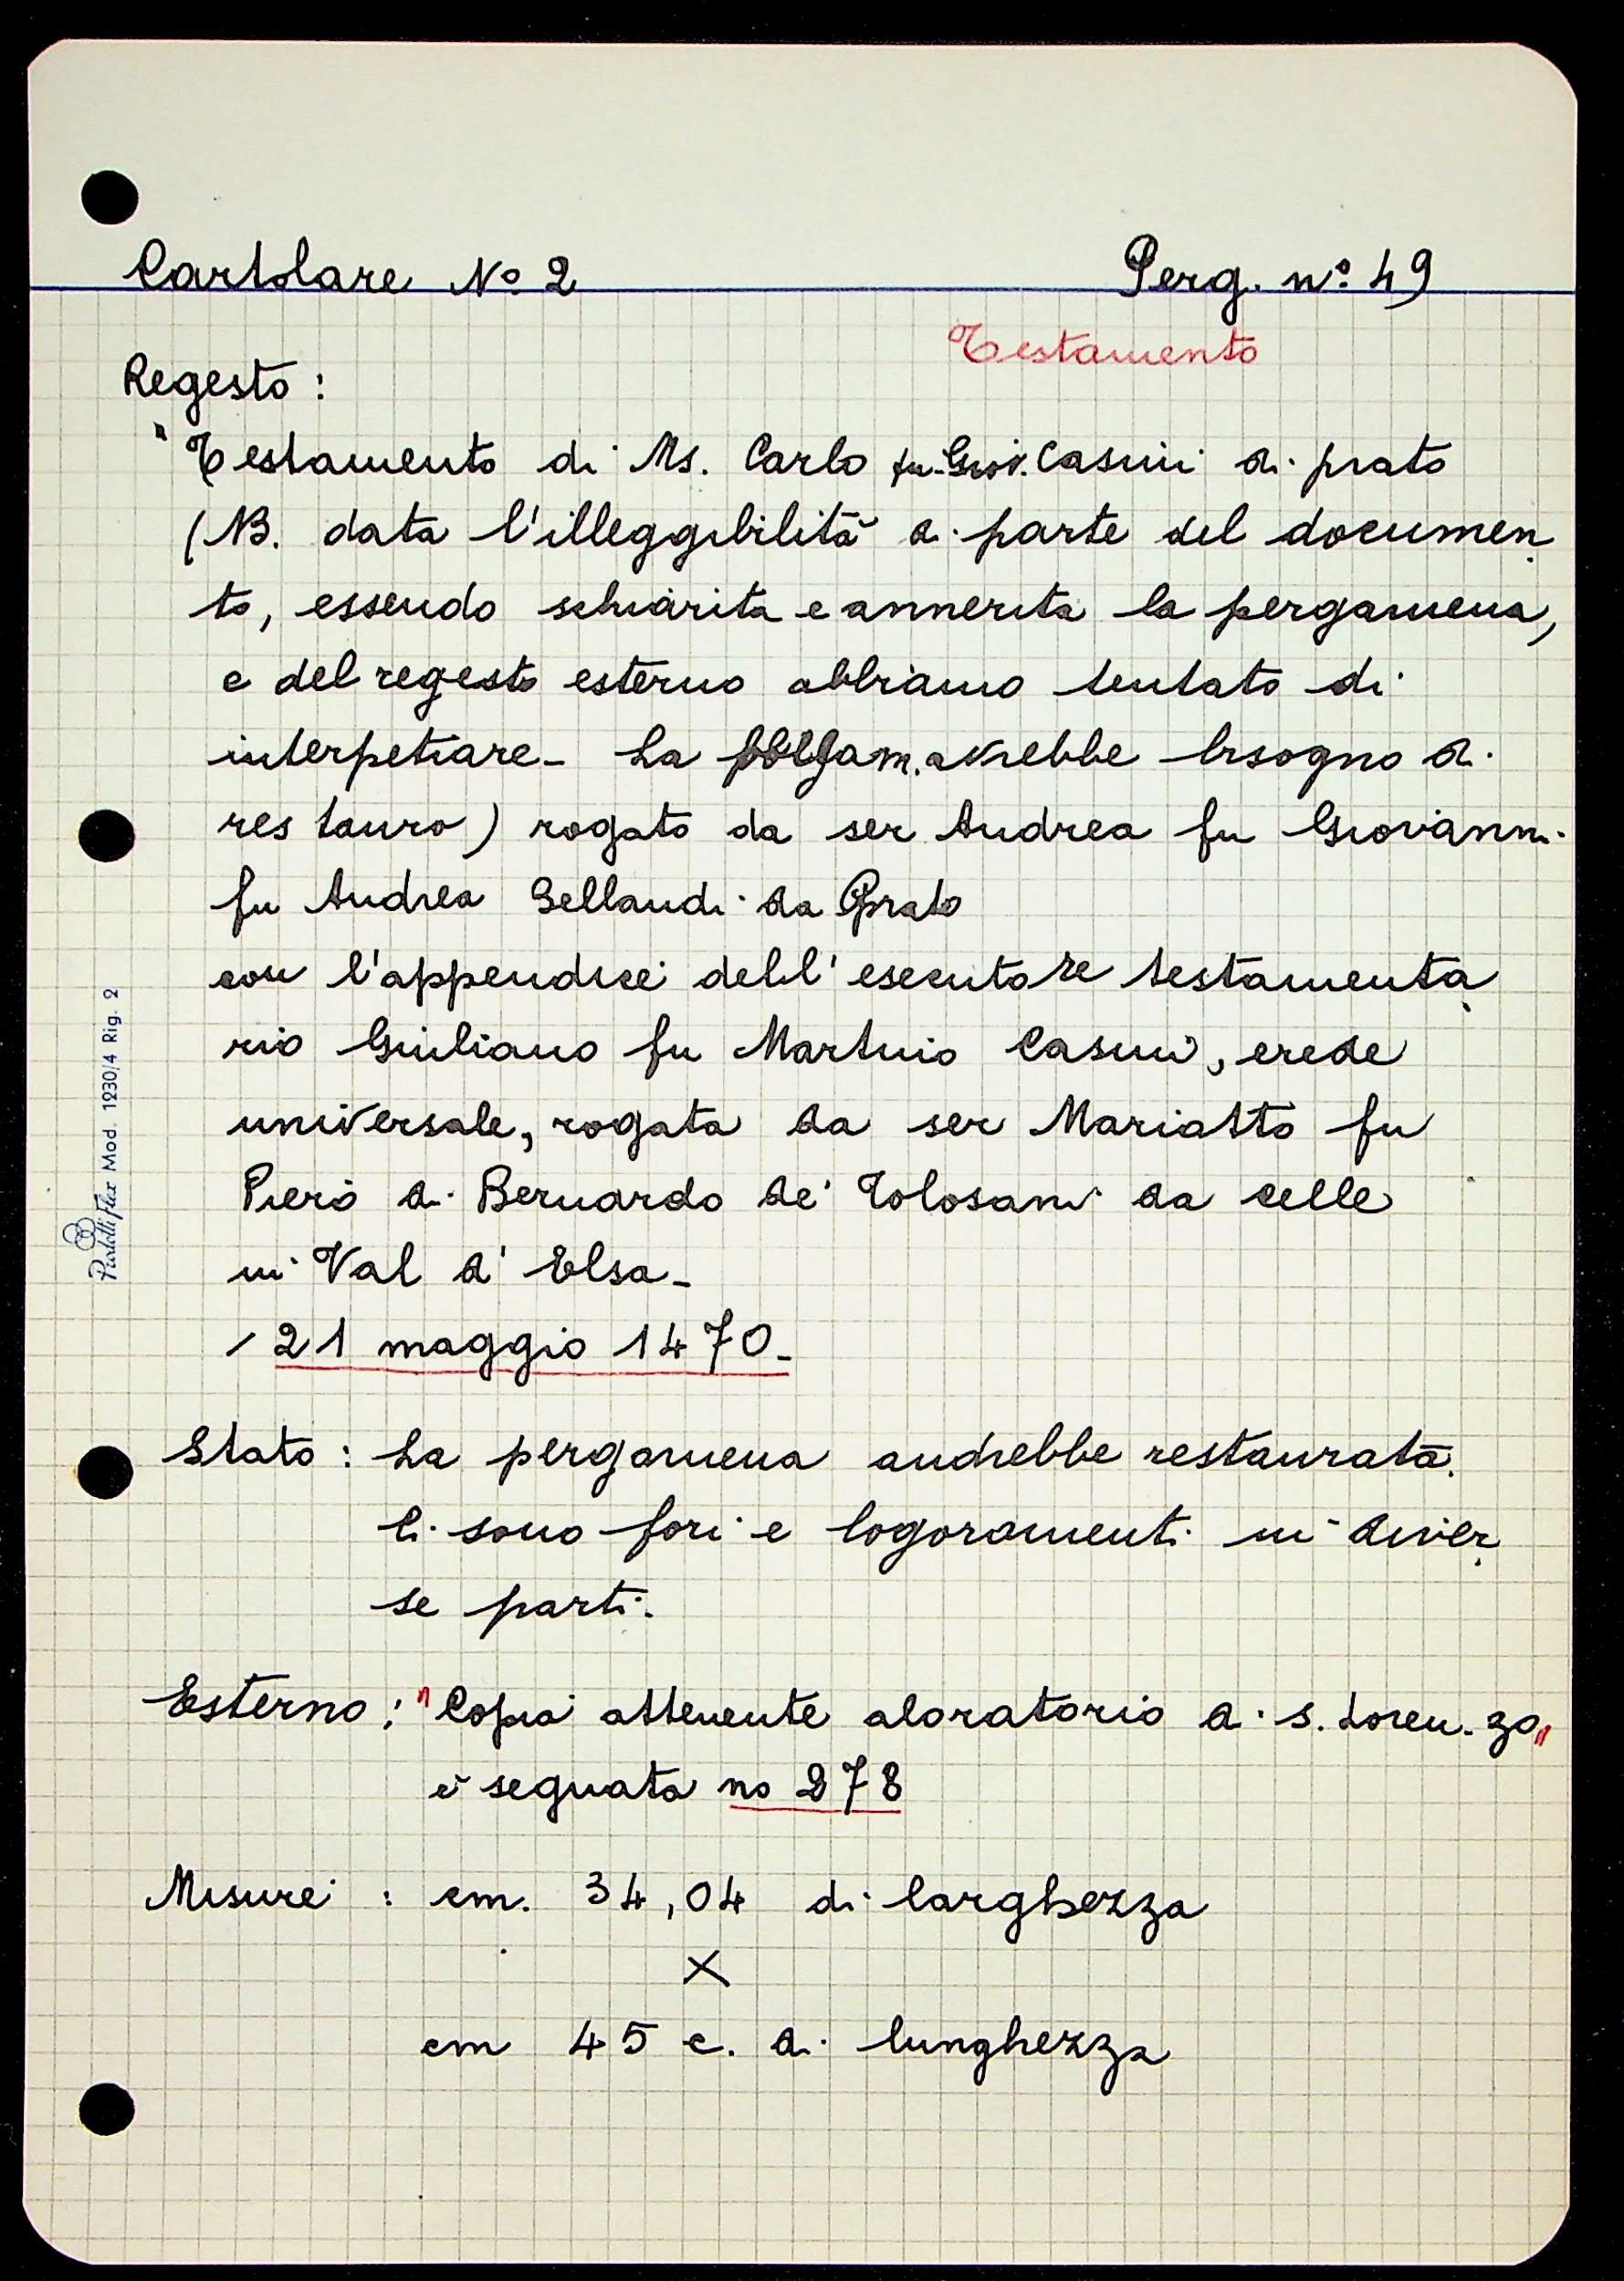 Cartolare No 2 Perg. n° 49
Testamento
Regesto:
"Testamento di Ms. Carlo fu Giov. Casini di prato
(NB. data l'illeggibilità di parte del documen
to, essendo schiarita e annerita la pergamena,
e del regesto esterno abbiamo tentato di
interpetrare - La pergam. avrebbe bisogno di
restauro) rogato da ser Andrea fu Giovanni
fu Andrea da Prato
con l'appendice dell' esecutore testamenta
rio Giuliano fu Martino Casini, erede
universale, rogata da ser Mariotto fu
Piero di Bernardo de' Tolosani da celle
in Val d' Elsa -
/ 21 maggio 1470 -
Stato: La pergamena andrebbe restaurata.
Ci sono fori e logoramenti in diver
se parti.
Esterno: "Copia attenente aloratorio di s. Loren-zo"
è segnata no 278
Misure: cm. 34,04 di larghezza
X
cm 45 c. di lunghezza
PastelliFlex Mod. 1230/4 Rig. 2